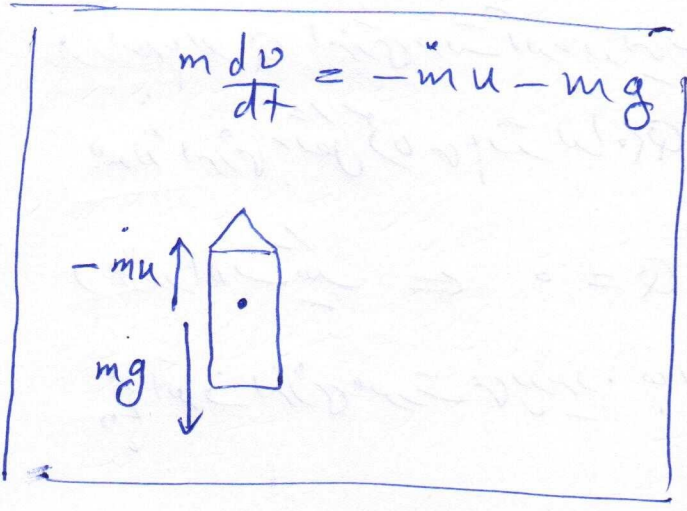 m dv/dt = -ṁu - mg
-ṁu
mg